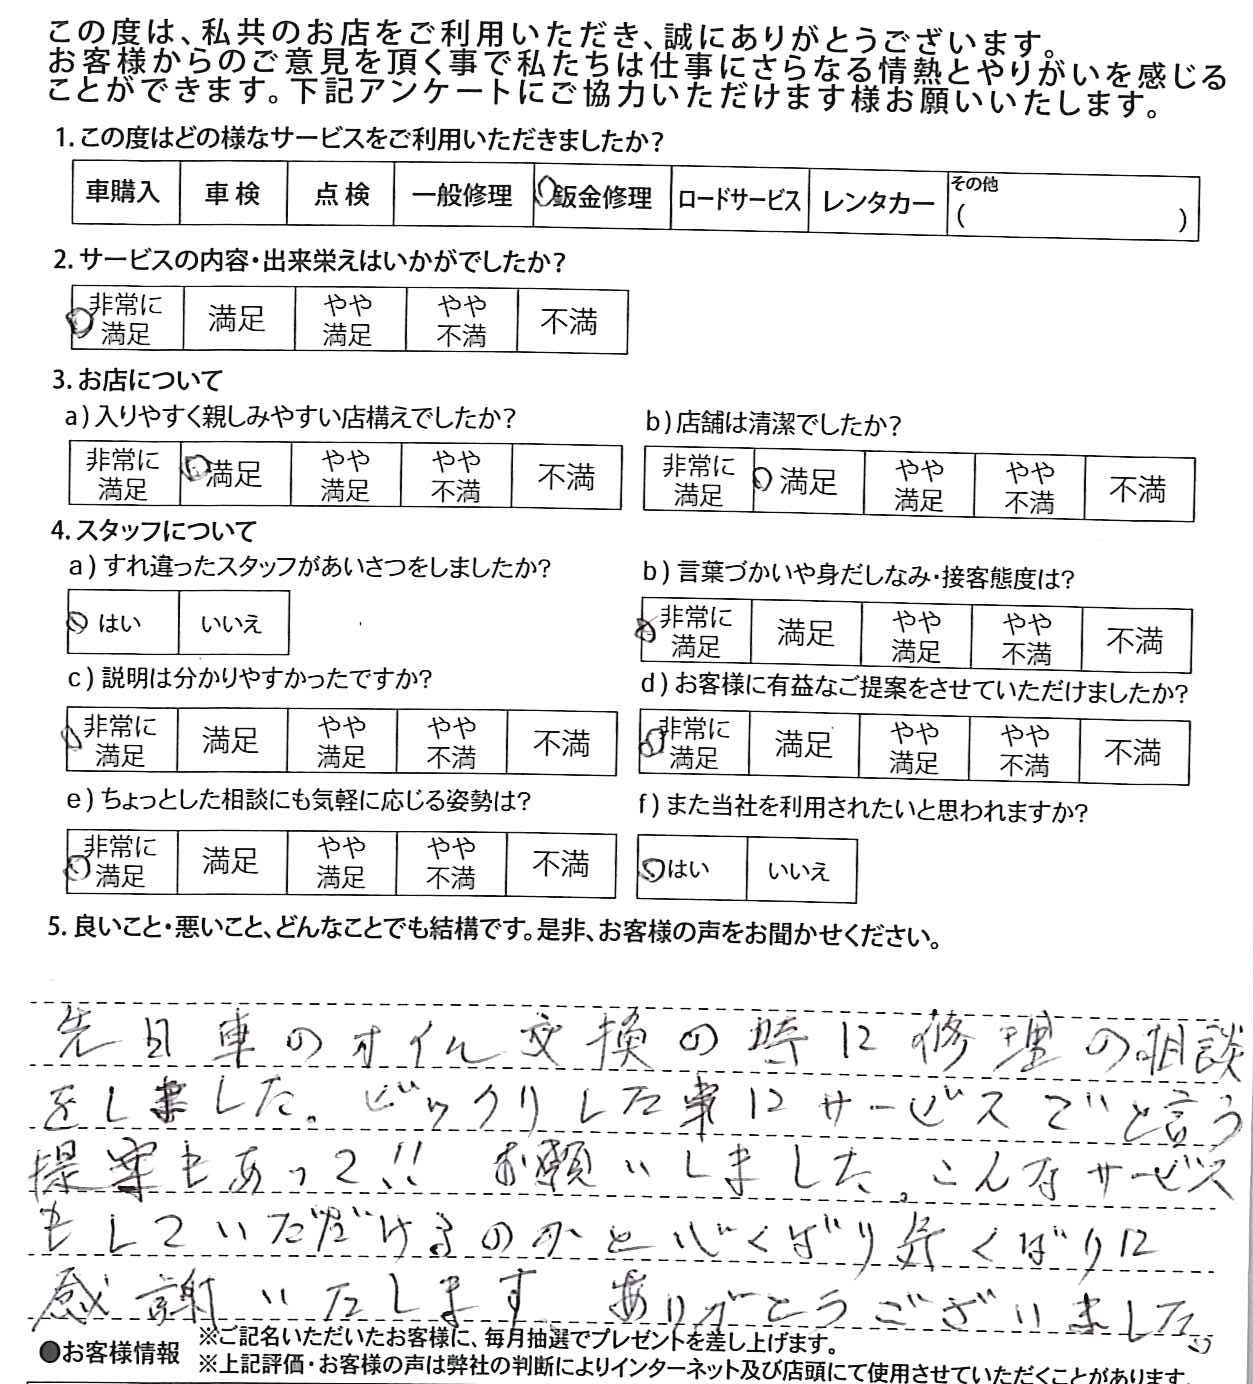 この度は、私共のお店をご利用いただき、誠にありがとうございます。
お客様からのご意見を頂く事で私たちは仕事にさらなる情熱とやりがいを感じる
ことができます。下記アンケートにご協力いただけます様お願いいたします。
1. この度はどの様なサービスをご利用いただきましたか?
車購入 車検 点検 一般修理 鈑金修理 ロードサービス レンタカー その他 ( )
2. サービスの内容・出来栄えはいかがでしたか?
非常に満足 満足 やや満足 やや不満 不満
3. お店について
a) 入りやすく親しみやすい店構えでしたか?
非常に満足 満足 やや満足 やや不満 不満
b) 店舗は清潔でしたか?
非常に満足 満足 やや満足 やや不満 不満
4. スタッフについて
a) すれ違ったスタッフがあいさつをしましたか?
はい いいえ
b) 言葉づかいや身だしなみ・接客態度は?
非常に満足 満足 やや満足 やや不満 不満
c) 説明は分かりやすかったですか?
非常に満足 満足 やや満足 やや不満 不満
d) お客様に有益なご提案をさせていただけましたか?
非常に満足 満足 やや満足 やや不満 不満
e) ちょっとした相談にも気軽に応じる姿勢は?
非常に満足 満足 やや満足 やや不満 不満
f) また当社を利用されたいと思われますか?
はい いいえ
5. 良いこと・悪いこと、どんなことでも結構です。是非、お客様の声をお聞かせください。
先日車のオイル交換の時に修理の相談
をしました。ビックリした事にサービスでと言う
提案もあって!! お願いしました。こんなサービス
もしていただけるのかと心くばり気くばりに
感謝いたします ありがとうございました
●お客様情報 ※ご記名いただいたお客様に、毎月抽選でプレゼントを差し上げます。
※上記評価・お客様の声は弊社の判断によりインターネット及び店頭にて使用させていただくことがあります。